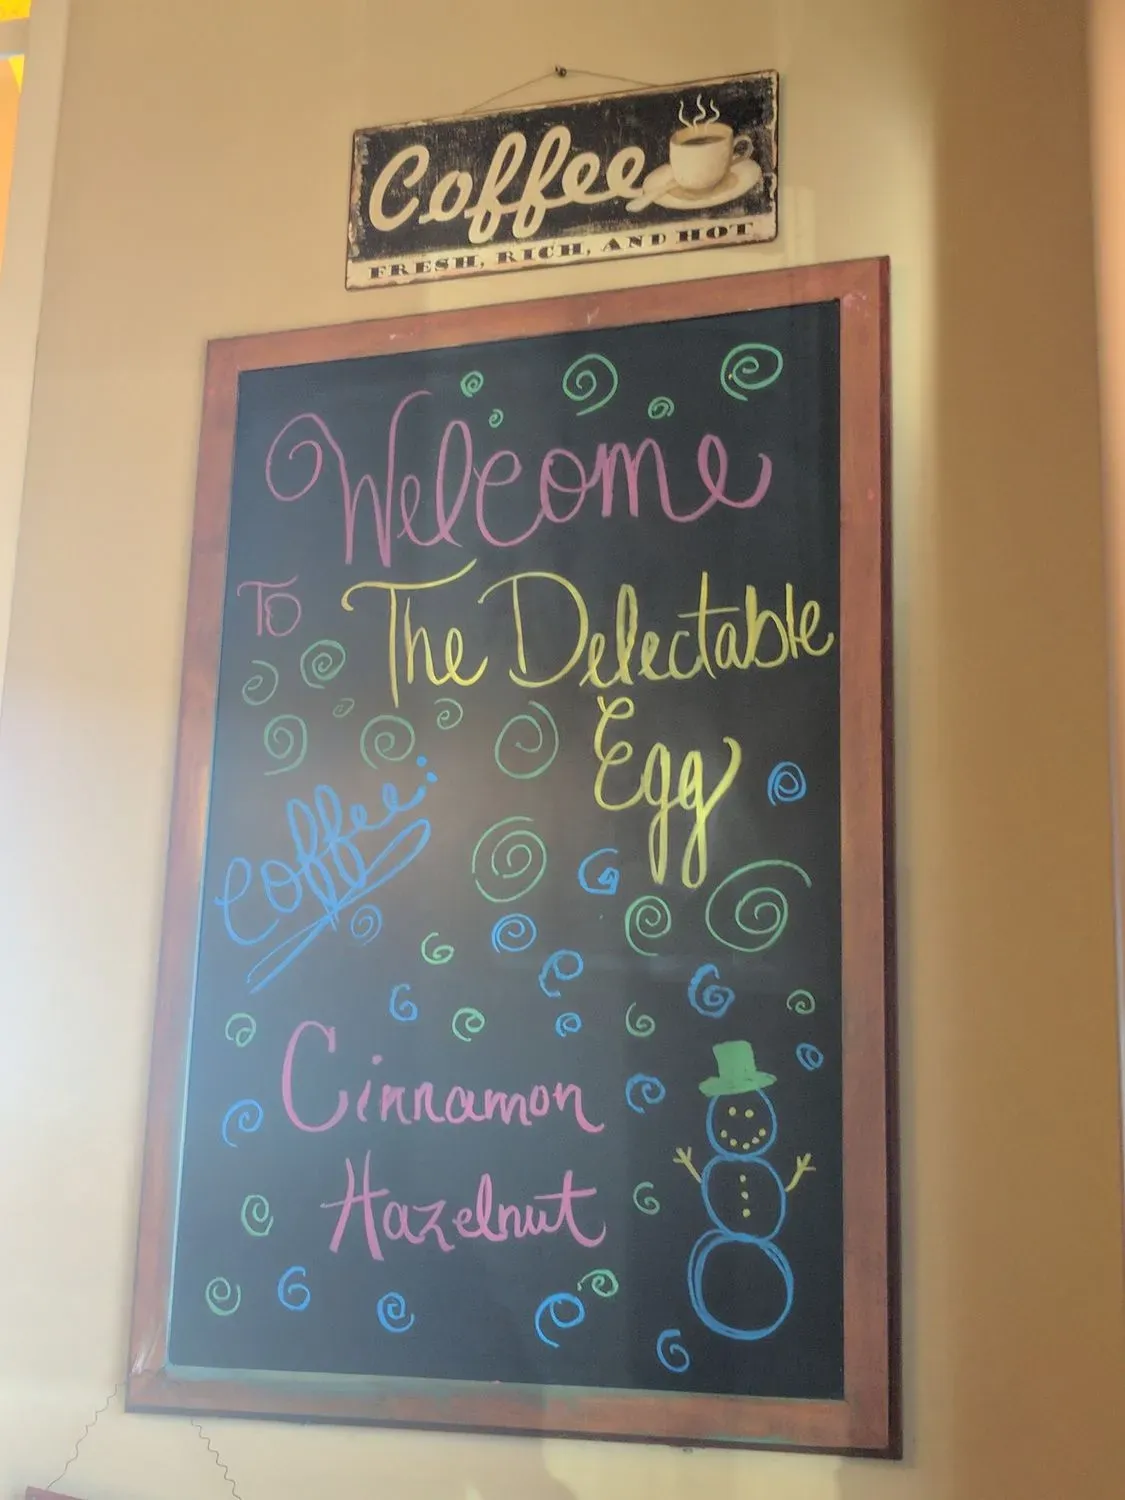 Coffee
FRESH, RICH, AND HOT
Welcome
To The Delectable
Egg
Coffee:
Cinnamon
Hazelnut